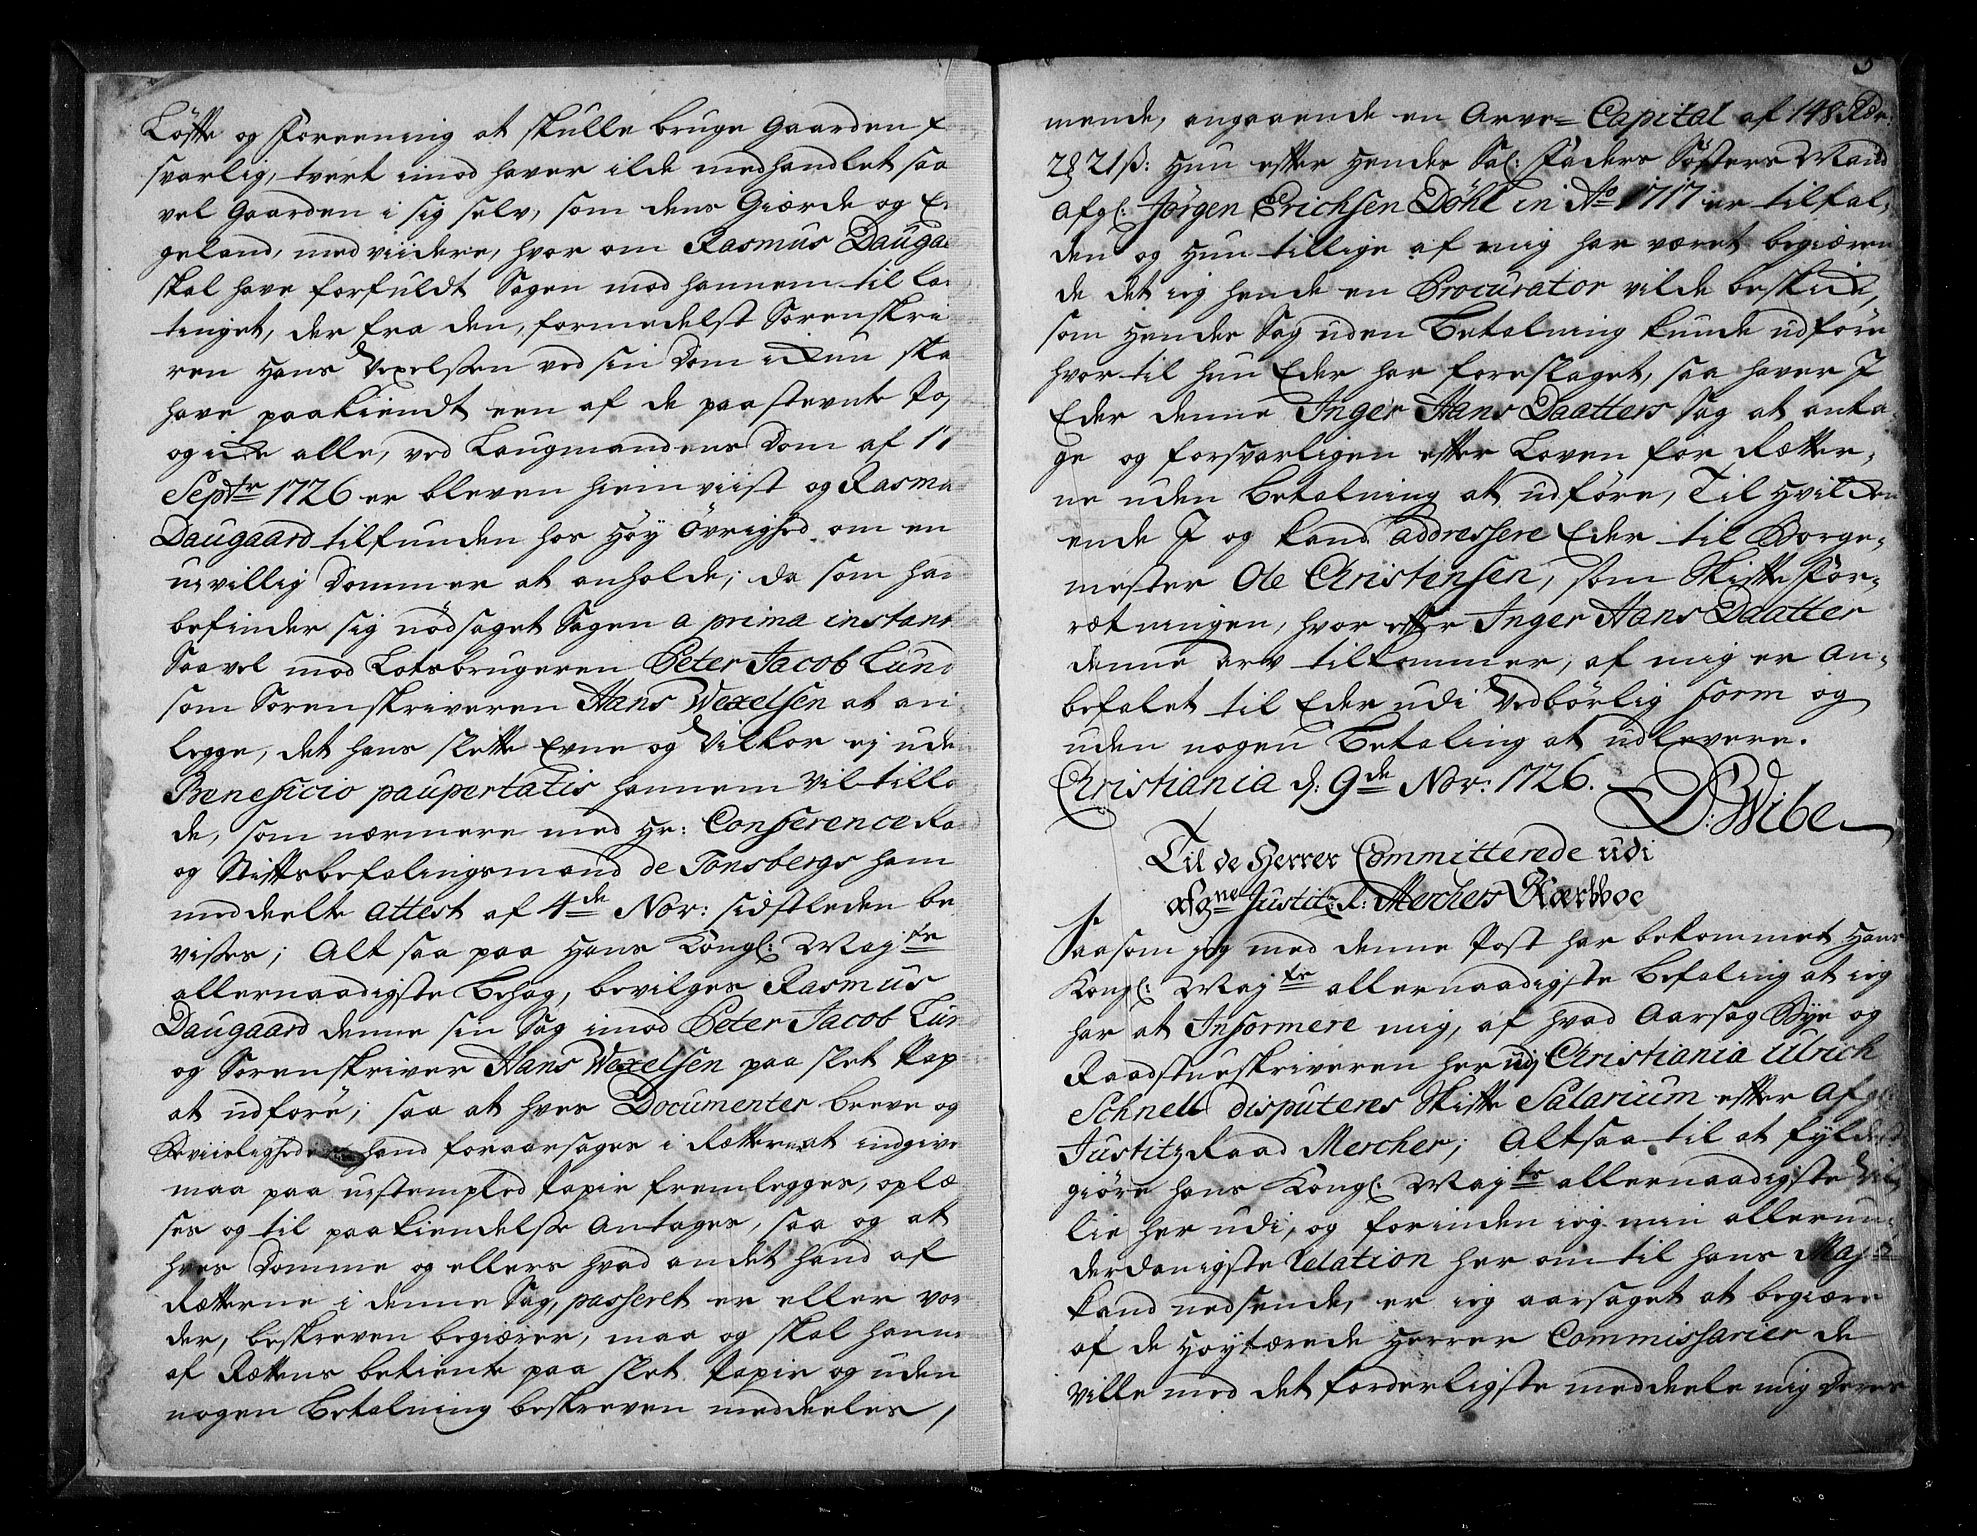 Löfte og Foreening at skulle bruge Gaarden f
svarlig, tvert imod haver ilde medhandlet saa
vel Gaarden i sig selv, som dens Giærde og En
geland, med viidere, hvor om Rasmus Daugaa
skal have forfuldt Sagen mod hannem til La
tinget, der fra den, formedelst Sorenskri
ren Hans Vexelssen ved sin Dom ickun ska
have paakiendt een af de paastevnte Po
og icke alle, ved Laugmandens Dom af 17
Septr 1726 er bleven hiemviist og Rasmus
Daugaard tilfunden hos Höy Övrighed om en
uvillig Dommer at anholde; da som hand
befinder sig nödsaget Sagen a prima instantia
Saavel mod Lotsbrugeren Peter Jacob Lund
som Sorenskriveren Hans Wexelsen at an-
legge, det hans slette Evne og Vilkor ej uden
Beneficio paupertatis hannem vil tilla
de, som nærmere med Hr: Conference Raad
og Stiftsbefalingsmand de Tonsbergs ham
meddeelte Attest af 4de Nov: sidstleden be
vises; Alt saa paa Hans Kongl: Mayts
allernaadigste Behag, bevilges Rasmus
Daugaard denne sin Sag imod Peter Jacob Lund
og Sorenskriver Hans Wexelsen paa slet Pap
at udföre; saa at hves Documenter breve og
Beviisligheder hand foraarsages i Retterne at indgive
maa paa ustempled Papir fremlegges, oplæ
ses og til paakiendelse Antages, saa og at
hves Domme og ellers hvad andet hand af
Rætterne i denne Sag, passeret er eller vor
der, beskreven begiærer, maa og skal hannem
af Rættens betiente paa slet Papir og uden
nogen Betalning beskreven meddeeles,
5
mende, angaaende en Arve= Capital af 148 Rdr:
2 21 ß: Hun efter Hendes Sal: Faders Sösters Mand
Afgl: Jörgen Erichsen Döhl in Ao 1717 er tilfal,
den og Hun tillige af mig har været begiæren
de det ieg hende en Procurator vilde beskicke,
som Hendes Sag uden Betalning kunde udföre
hvortil hun Eder har foreslaget, saa haver I
Eder denne Inger Hans Daatters Sag at anta-
ge og forsvarligen efter Loven for Rætter,
ne uden Betalning at udföre, Til Hvilcken
ende I og kand addressere Eder til Borge,
mester Ole Christensen, som Skifte For-
rætningen, hvor efter Inger Hans Daatter
denne arv tilkommer, af mig er An-
befalet til Eder udi Vedbörlig form og
uden nogen Betaling at udlevere.
Christiania d: 9de Nov: 1726.
D: Wibe
Til de Herrer Committerede udi
afgne Justitz R: Merchers Stærbboe
Saasom jeg med denne Post har bekommet Hans
Kongl: Mayts allernaadigste Befaling at ieg
har at Informere mig, af hvad Aarsag Bye og
Raadstueskriveren her udj Christiania Ulrich
Schnell disputeres Skifte Salarium efter Afgl:
Justitz Raad Mercher; Altsaa til at fyldest
giöre hans Kongl: Mayts allernaadigste Vil
lie her udi, og forinden ieg min allerun,
derdanigste Relation her om til hans Mayts
kand nedsende, er ieg aarsaget at begiære
af de Höytærede Herrer Commissarier de
ville med det forderligste meddeele mig deres